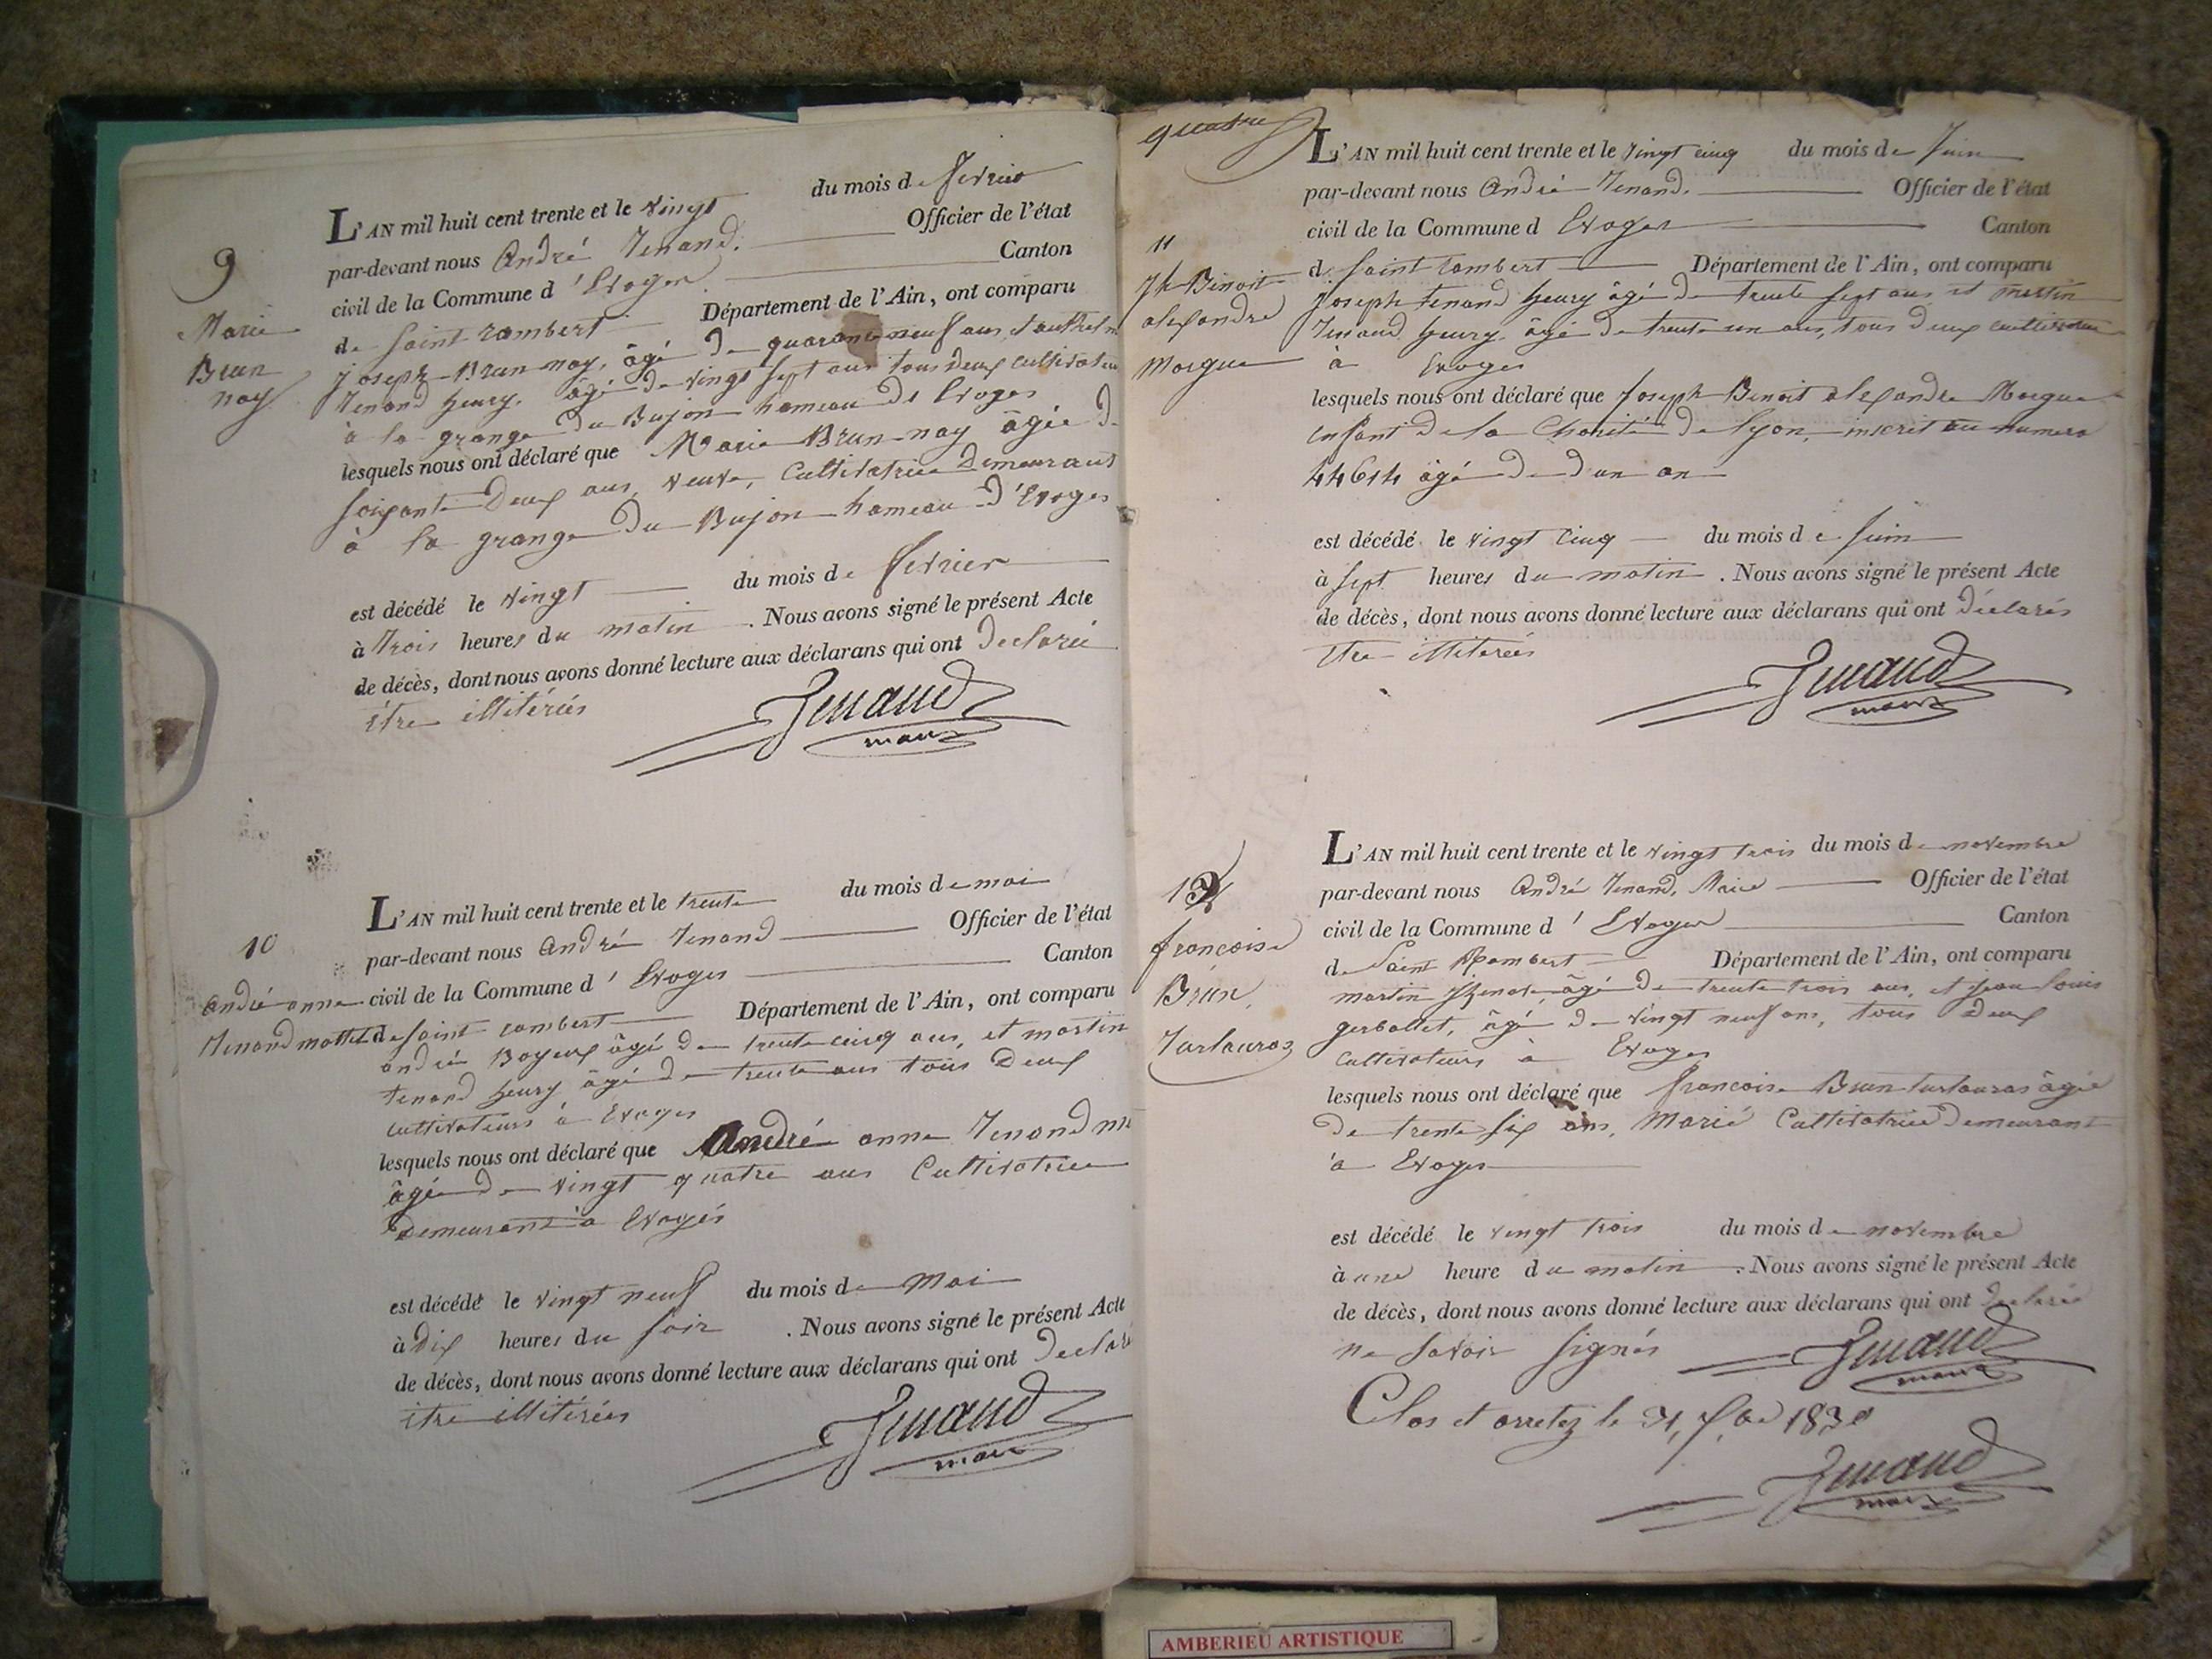 9
Marie
Brun
noy
L'AN mil huit cent trente et le vingt du mois de fevrier
par-devant nous André Tenand. Officier de l'état
civil de la Commune d'Evoges. Canton
de saint rambert Département de l'Ain, ont comparu
joseph Brun-noy, âgé de quarante neuf ans, et anthelm
Tenand heury. âgé de vingt sept ans tous deux cultivateurs
à la grange du Bujon hameau de Evoges
lesquels nous ont déclaré que Marie Brun-noy âgée de
soixante Deux ans, veuve, Cultivatrice Demeurant
à la grange du Bujon hameau d'Evoges
est décédé le vingt du mois de fevrier
à trois heures du matin. Nous avons signé le présent Acte
de décès, dont nous avons donné lecture aux déclarans qui ont declarée
être illitérées
Tenand
maire
10
André anne
Tenand mottet
L'AN mil huit cent trente et le trente du mois de mai
par-devant nous André Tenand Officier de l'état
civil de la Commune d'Evoges Canton
de saint rambert Département de l'Ain, ont comparu
andré Boyeux âgé de trente cinq ans, et martin
tenand heury âgé de trente ans tous deux
cultivateurs à Evoges
lesquels nous ont déclaré que André anne Tenand
âgée de vingt quatre ans Cultivatrice
Demeurant à Evoges
est décédé le vingt neuf du mois de Mai
à dix heures du soir. Nous avons signé le présent Acte
de décès, dont nous avons donné lecture aux déclarans qui ont declaré
être illitérées
Tenand
maire
quatre
11
Jh Binoit
alexandre
Morgue
L'AN mil huit cent trente et le vingt cinq du mois de Juin
par-devant nous André Tenand. Officier de l'état
civil de la Commune d Evoges Canton
de saint rambert Département de l'Ain, ont comparu
joseph tenand heury âgé de trente sept ans et martin
Tenand heury âgé de trente un ans, tous deux cultivateurs
à Evoges
lesquels nous ont déclaré que Joseph Benoit alexandre Morgue
enfant de la Charité de lyon, inscrit au numero
44614 âgé de d'un an
est décédé le vingt cinq du mois de Juin
à sept heures du matin. Nous avons signé le présent Acte
de décès, dont nous avons donné lecture aux déclarans qui ont déclarés
être illiterées
Tenand
maire
12
francoise
Brun
Turlauraz
L'AN mil huit cent trente et le vingt trois du mois de novembre
par-devant nous André Tenand, Maire Officier de l'état
civil de la Commune d'Evoges Canton
de Saint Rambert Département de l'Ain, ont comparu
martin âgé de trente trois ans, et jean louis
gerbollet, âgé de vingt neuf ans, tous deux
cultivateurs à Evoges
lesquels nous ont déclaré que francoise Brun turlauras âgée
de trente six ans, Marié Cultivatrice Demeurant
à Evoges
est décédé le vingt trois du mois de novembre
à une heure du matin. Nous avons signé le présent Acte
de décès, dont nous avons donné lecture aux déclarans qui ont declarée
ne savoir signés
Tenand
maire
Clos et arretez le 31 Xbre 1830
Tenand
maire
AMBERIEU ARTISTIQUE